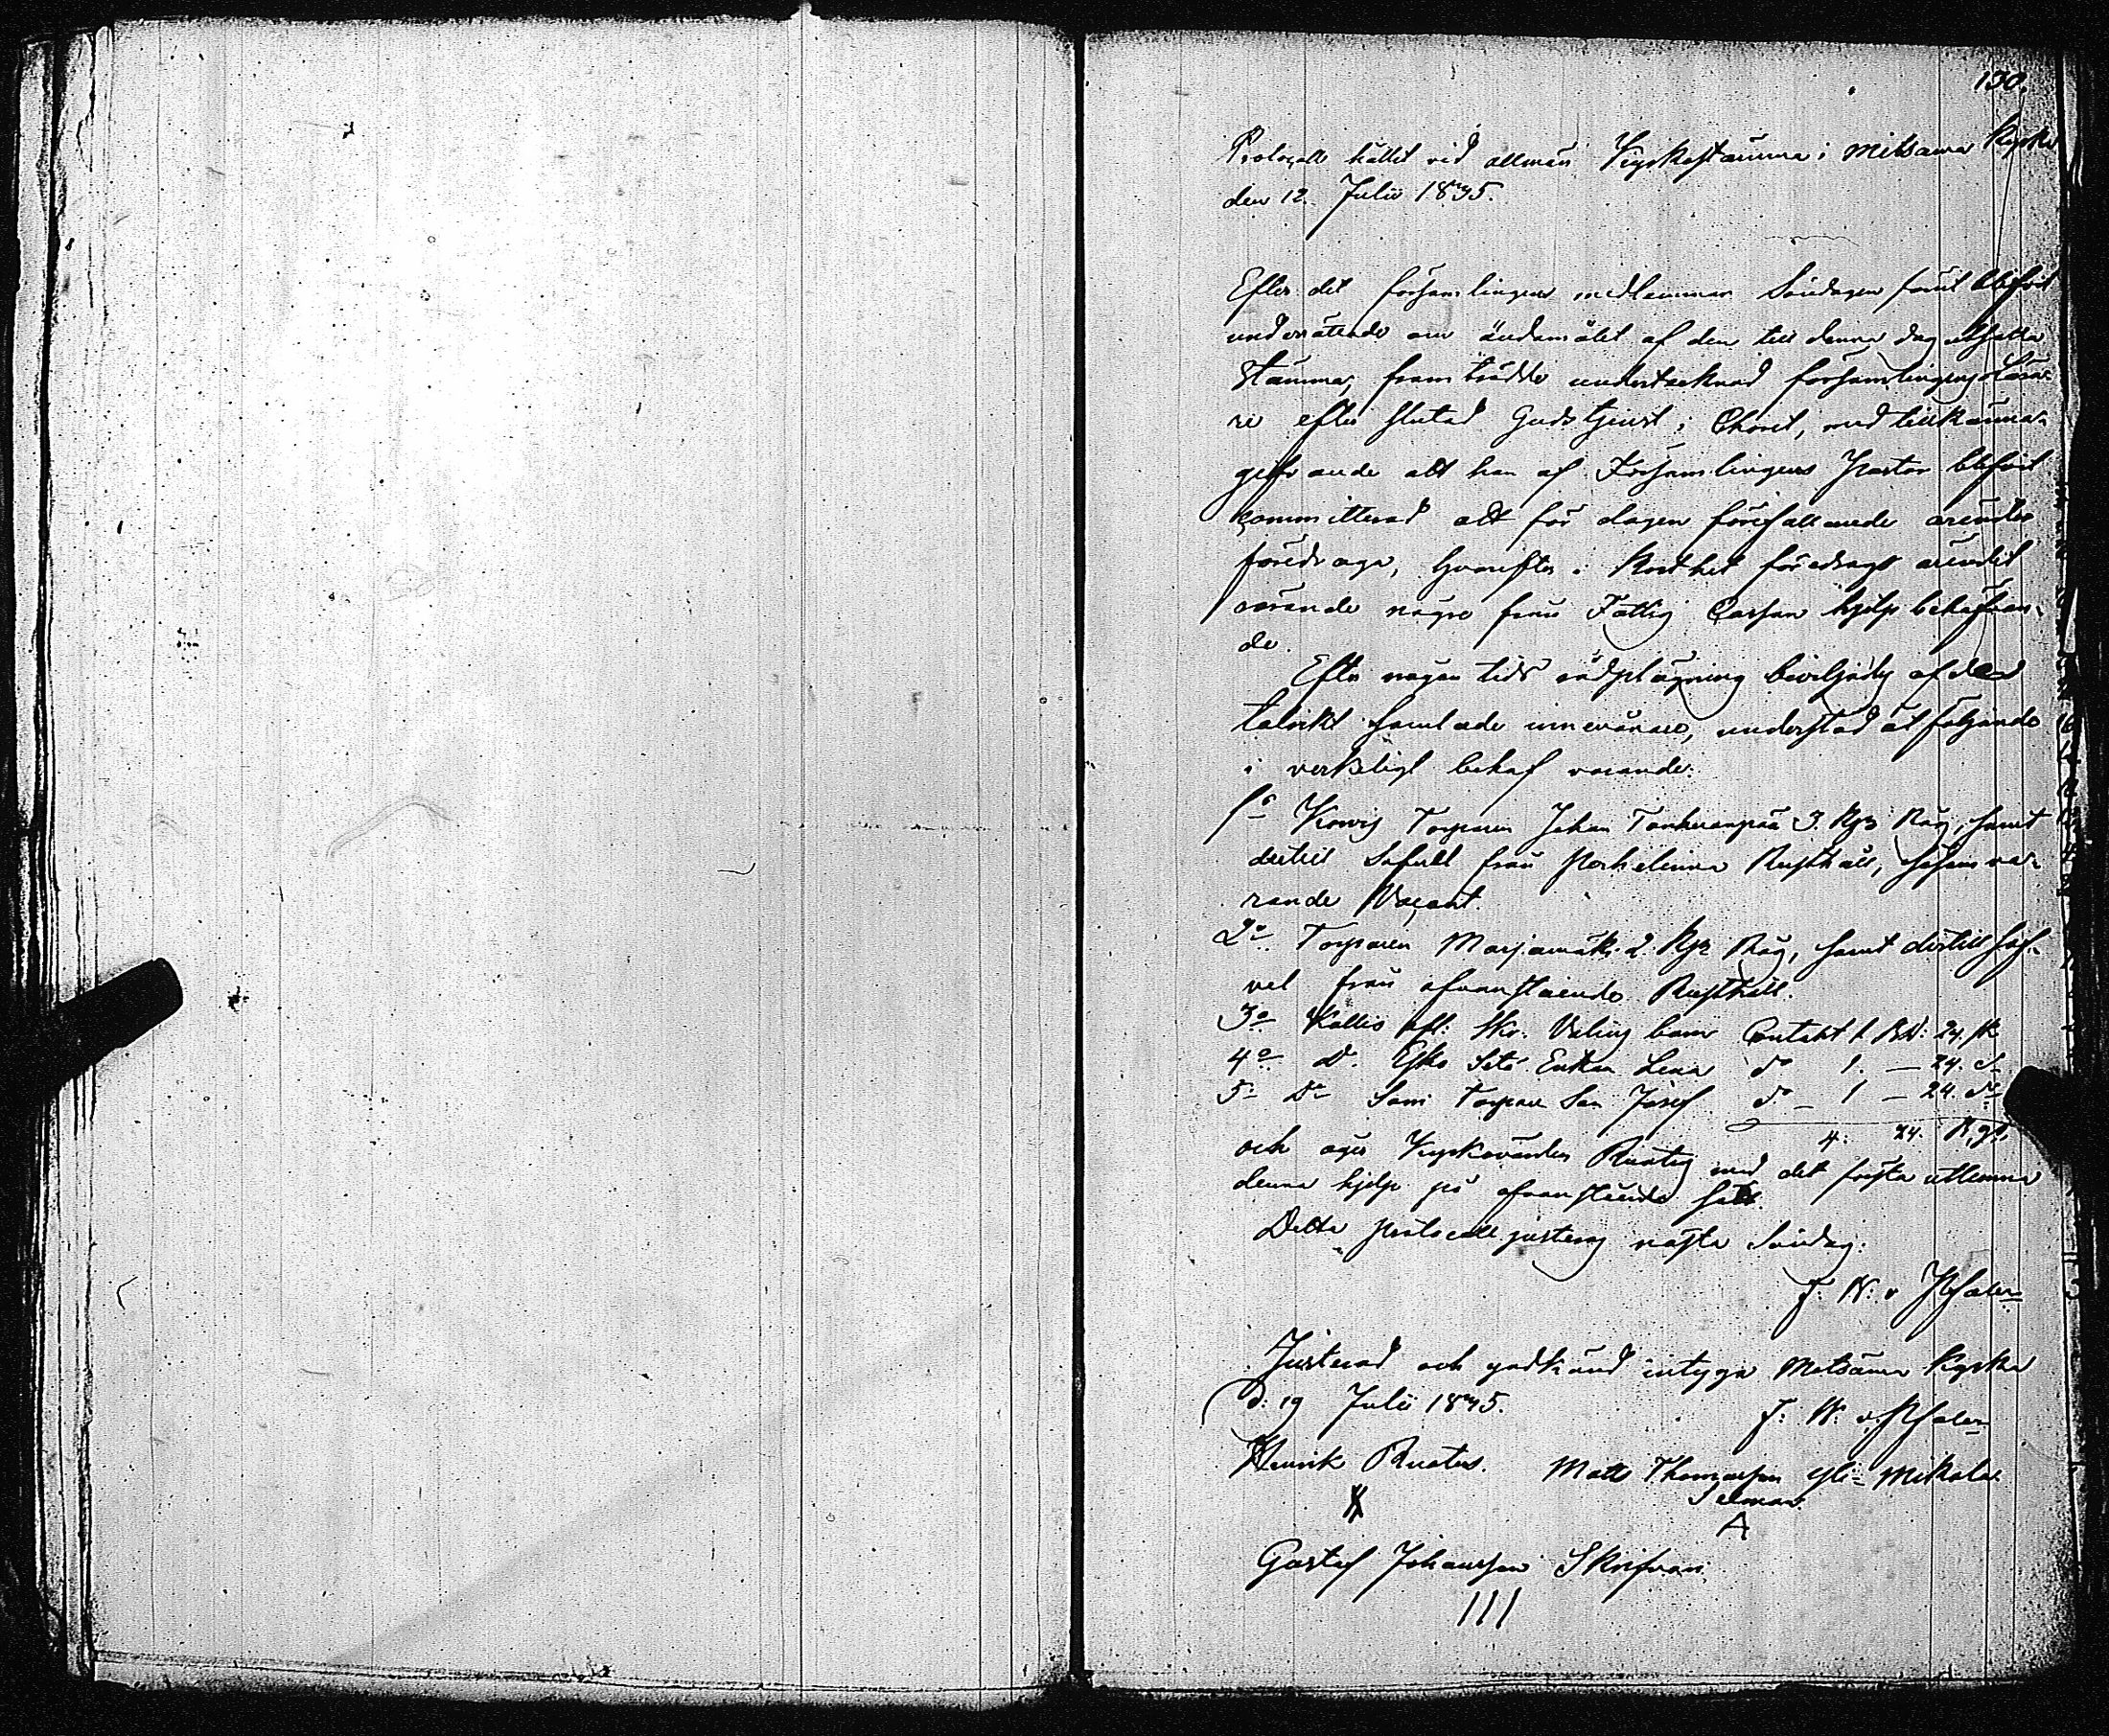 130.
Protocoll hållet vid allmän Kyrkostämma i Metsämaa Kyrka
den 12. Julii 1835.
Efter det församlingens medlemmar Söndagen förut blifvit
underrättade om ändamålet af den till denna dag utsatta
Stämma, framträdde undertecknad församlingens Lära-
re efter slutad Gudstjenst i Choret, med tillkänna-
gifvande att han af Församlingens Pastor blifvit
kommitterad att för dagen förefallande ärender
föredraga, hvarefter i korthet föredrogs ärendet
rörande några från Fattig Cassan hjelp behöfvan-
de.
Efter någon tids rådplägning beviljades af den
talrikt samlade menighen, understöd åt följande
i verkeligt behof varande:
1o Torparen Johan 3. Kpr Råg, samt
dertill från Rusthåll, såsom va-
rande Vacant.
2o Torparen Marjamäki 2. Kpr Råg, samt dertill
från ofvanstående Rusthåll.
3o Kallio barn Contant 1 Rd: 24. sk
4o Do. Esko Enkan Lena do 1. — 24. do
5o Do Torpare Son Josef do — 1 — 24. do
4: 24. Rgs.
och äger Kyrkovärden Ruatus med det första utlemna
denna hjelp på ofvanstående sätt.
Detta protocoll justeras nästa Söndag.
F: W: v Pfaler
Justerad och godkänd intyga Metsämaa Kyrka
d: 19 Julii 1835.
F: W: v. Pfaler
Henrik Ruatus. Matts Thomasson Yli-Mikola
A
Gustaf Johansson Skrifvari
III